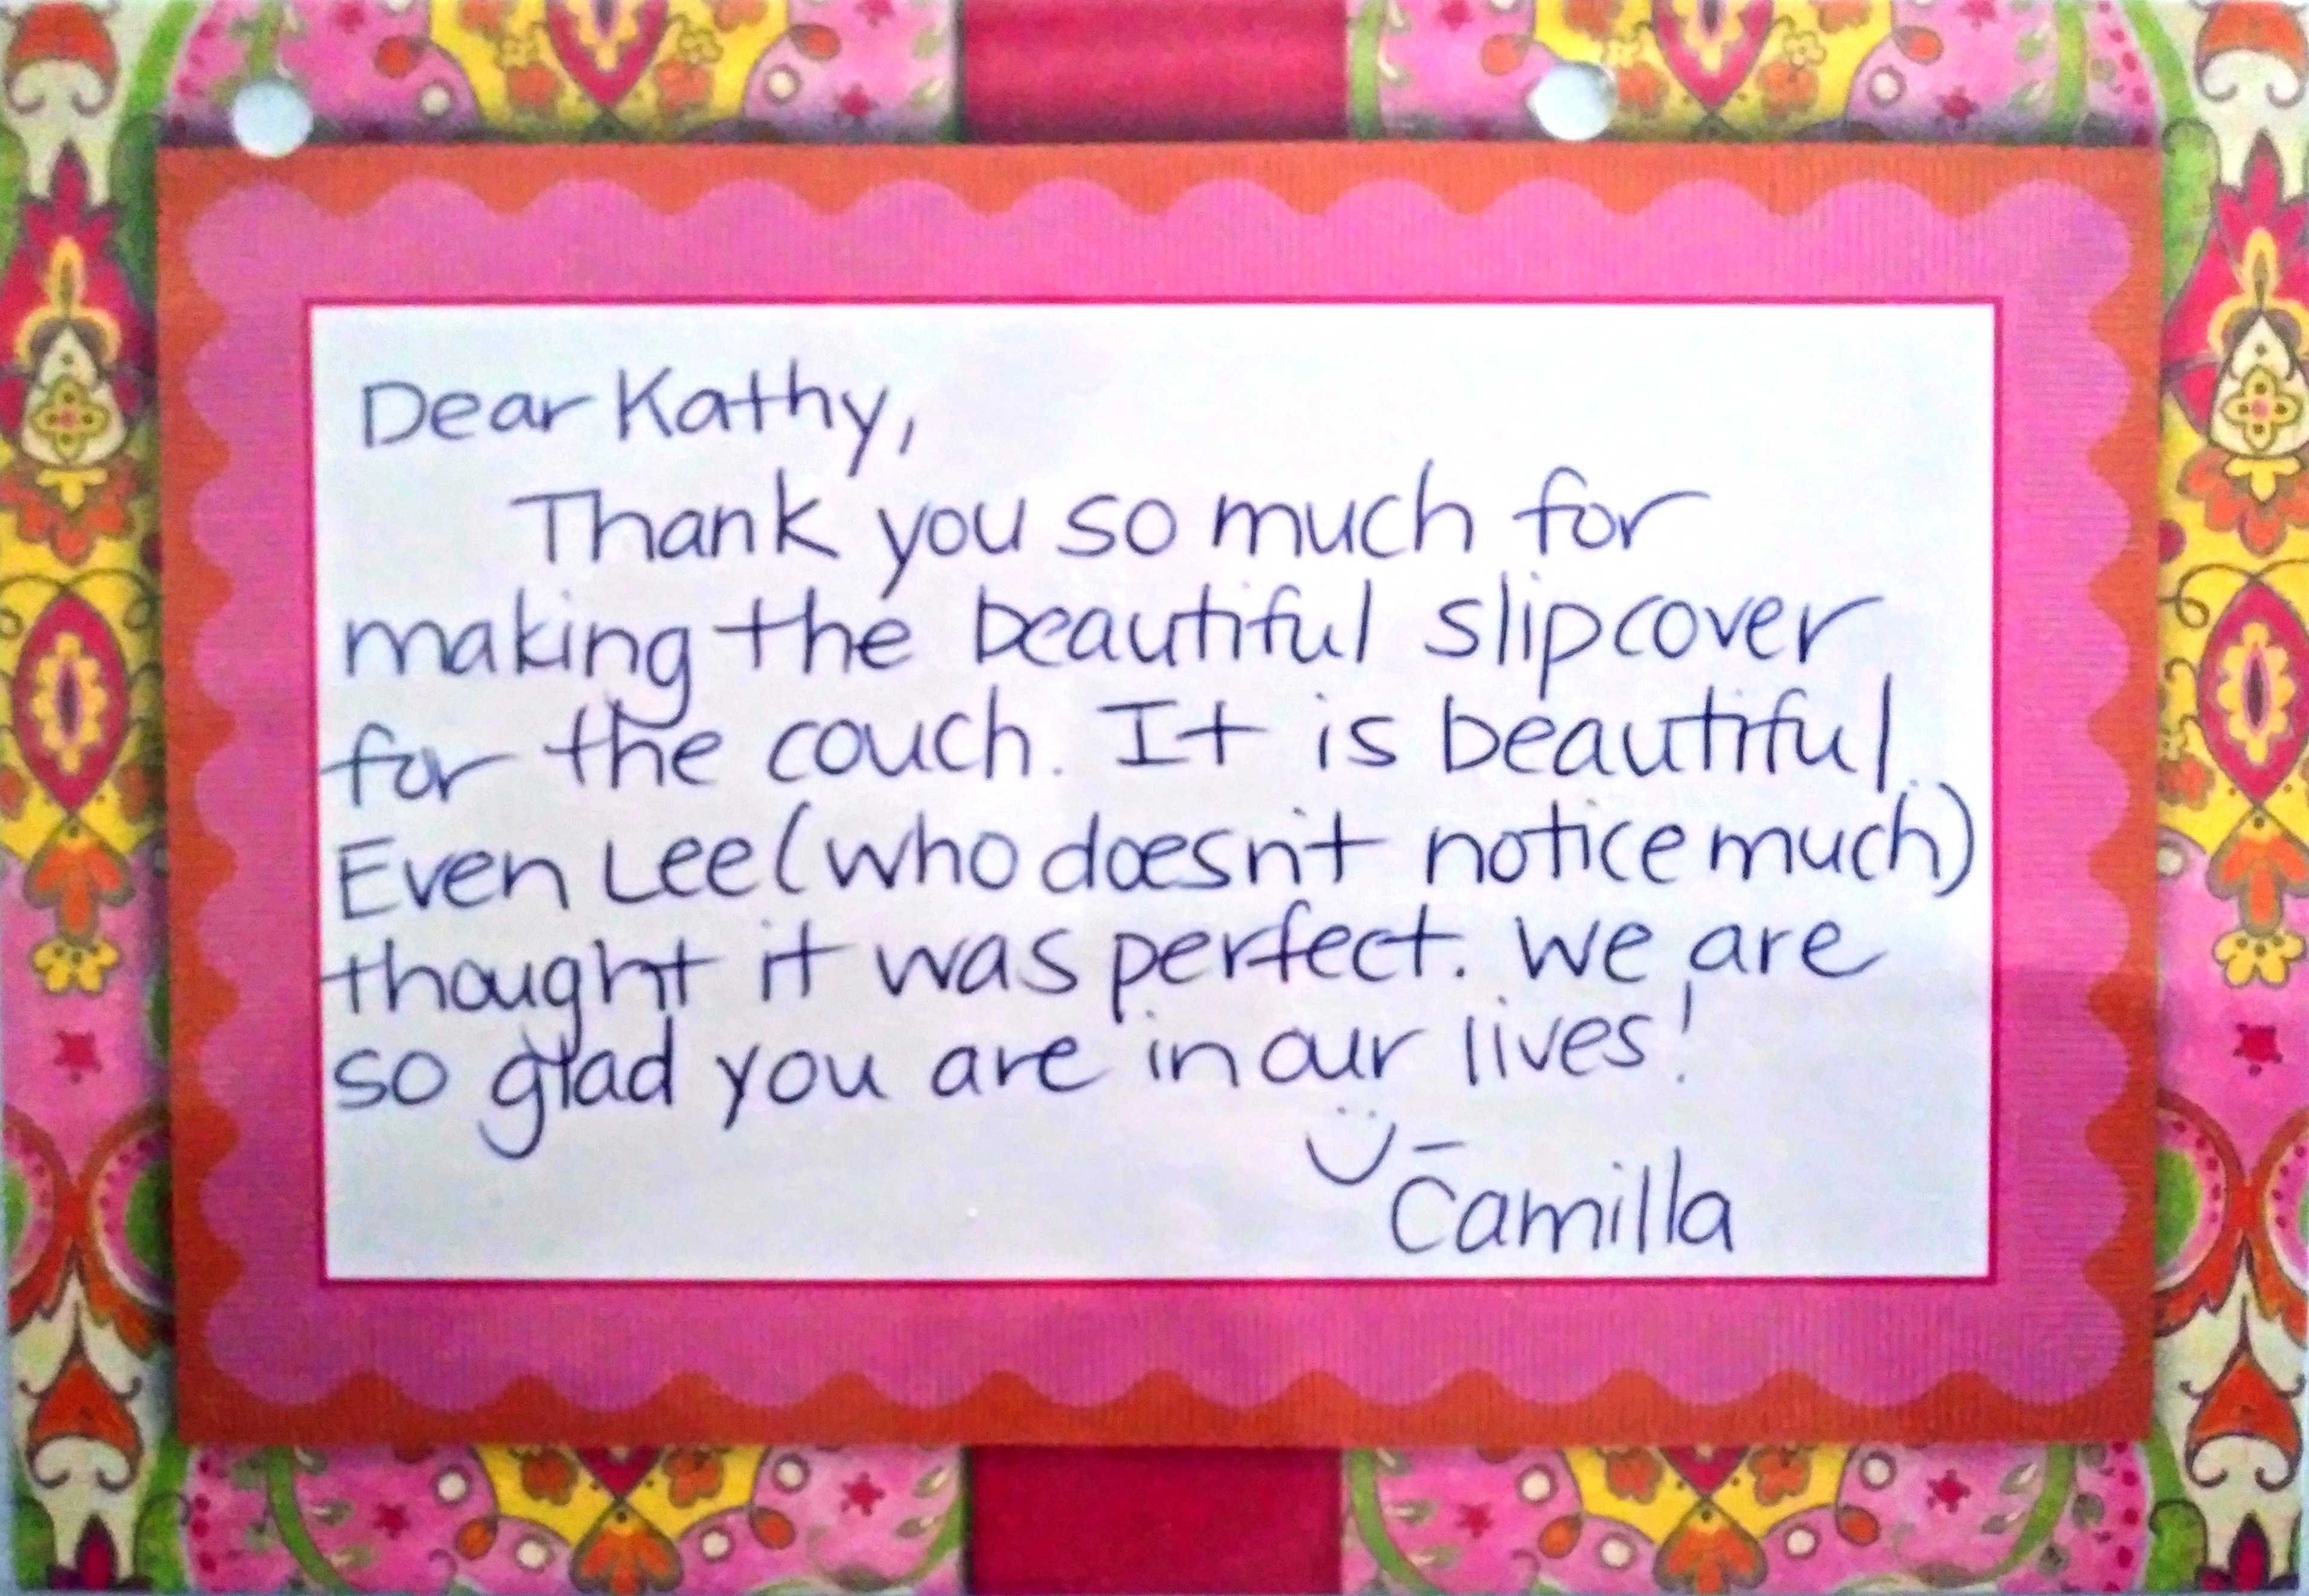 Dear Kathy,
Thank you so much for
making the beautiful slipcover
for the couch. It is beautiful.
Even Lee (who doesn't notice much)
thought it was perfect. We are
so glad you are in our lives!
- Camilla